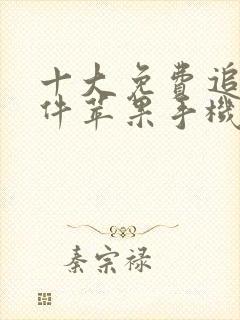 十大免费追
件苹果手機
秦宗禄